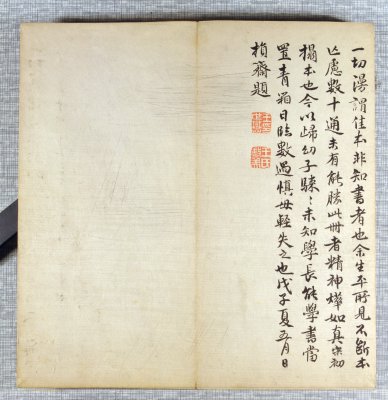 一切漫謂佳本非知書者也余生平所見不斷本
亡慮數十通未有能勝此冊者精神燁如真宋初
搨本也今以歸幼子騋騋未知學長能學書當
置青箱日臨數過慎毋輕失之也戊子夏五月日
損齋題